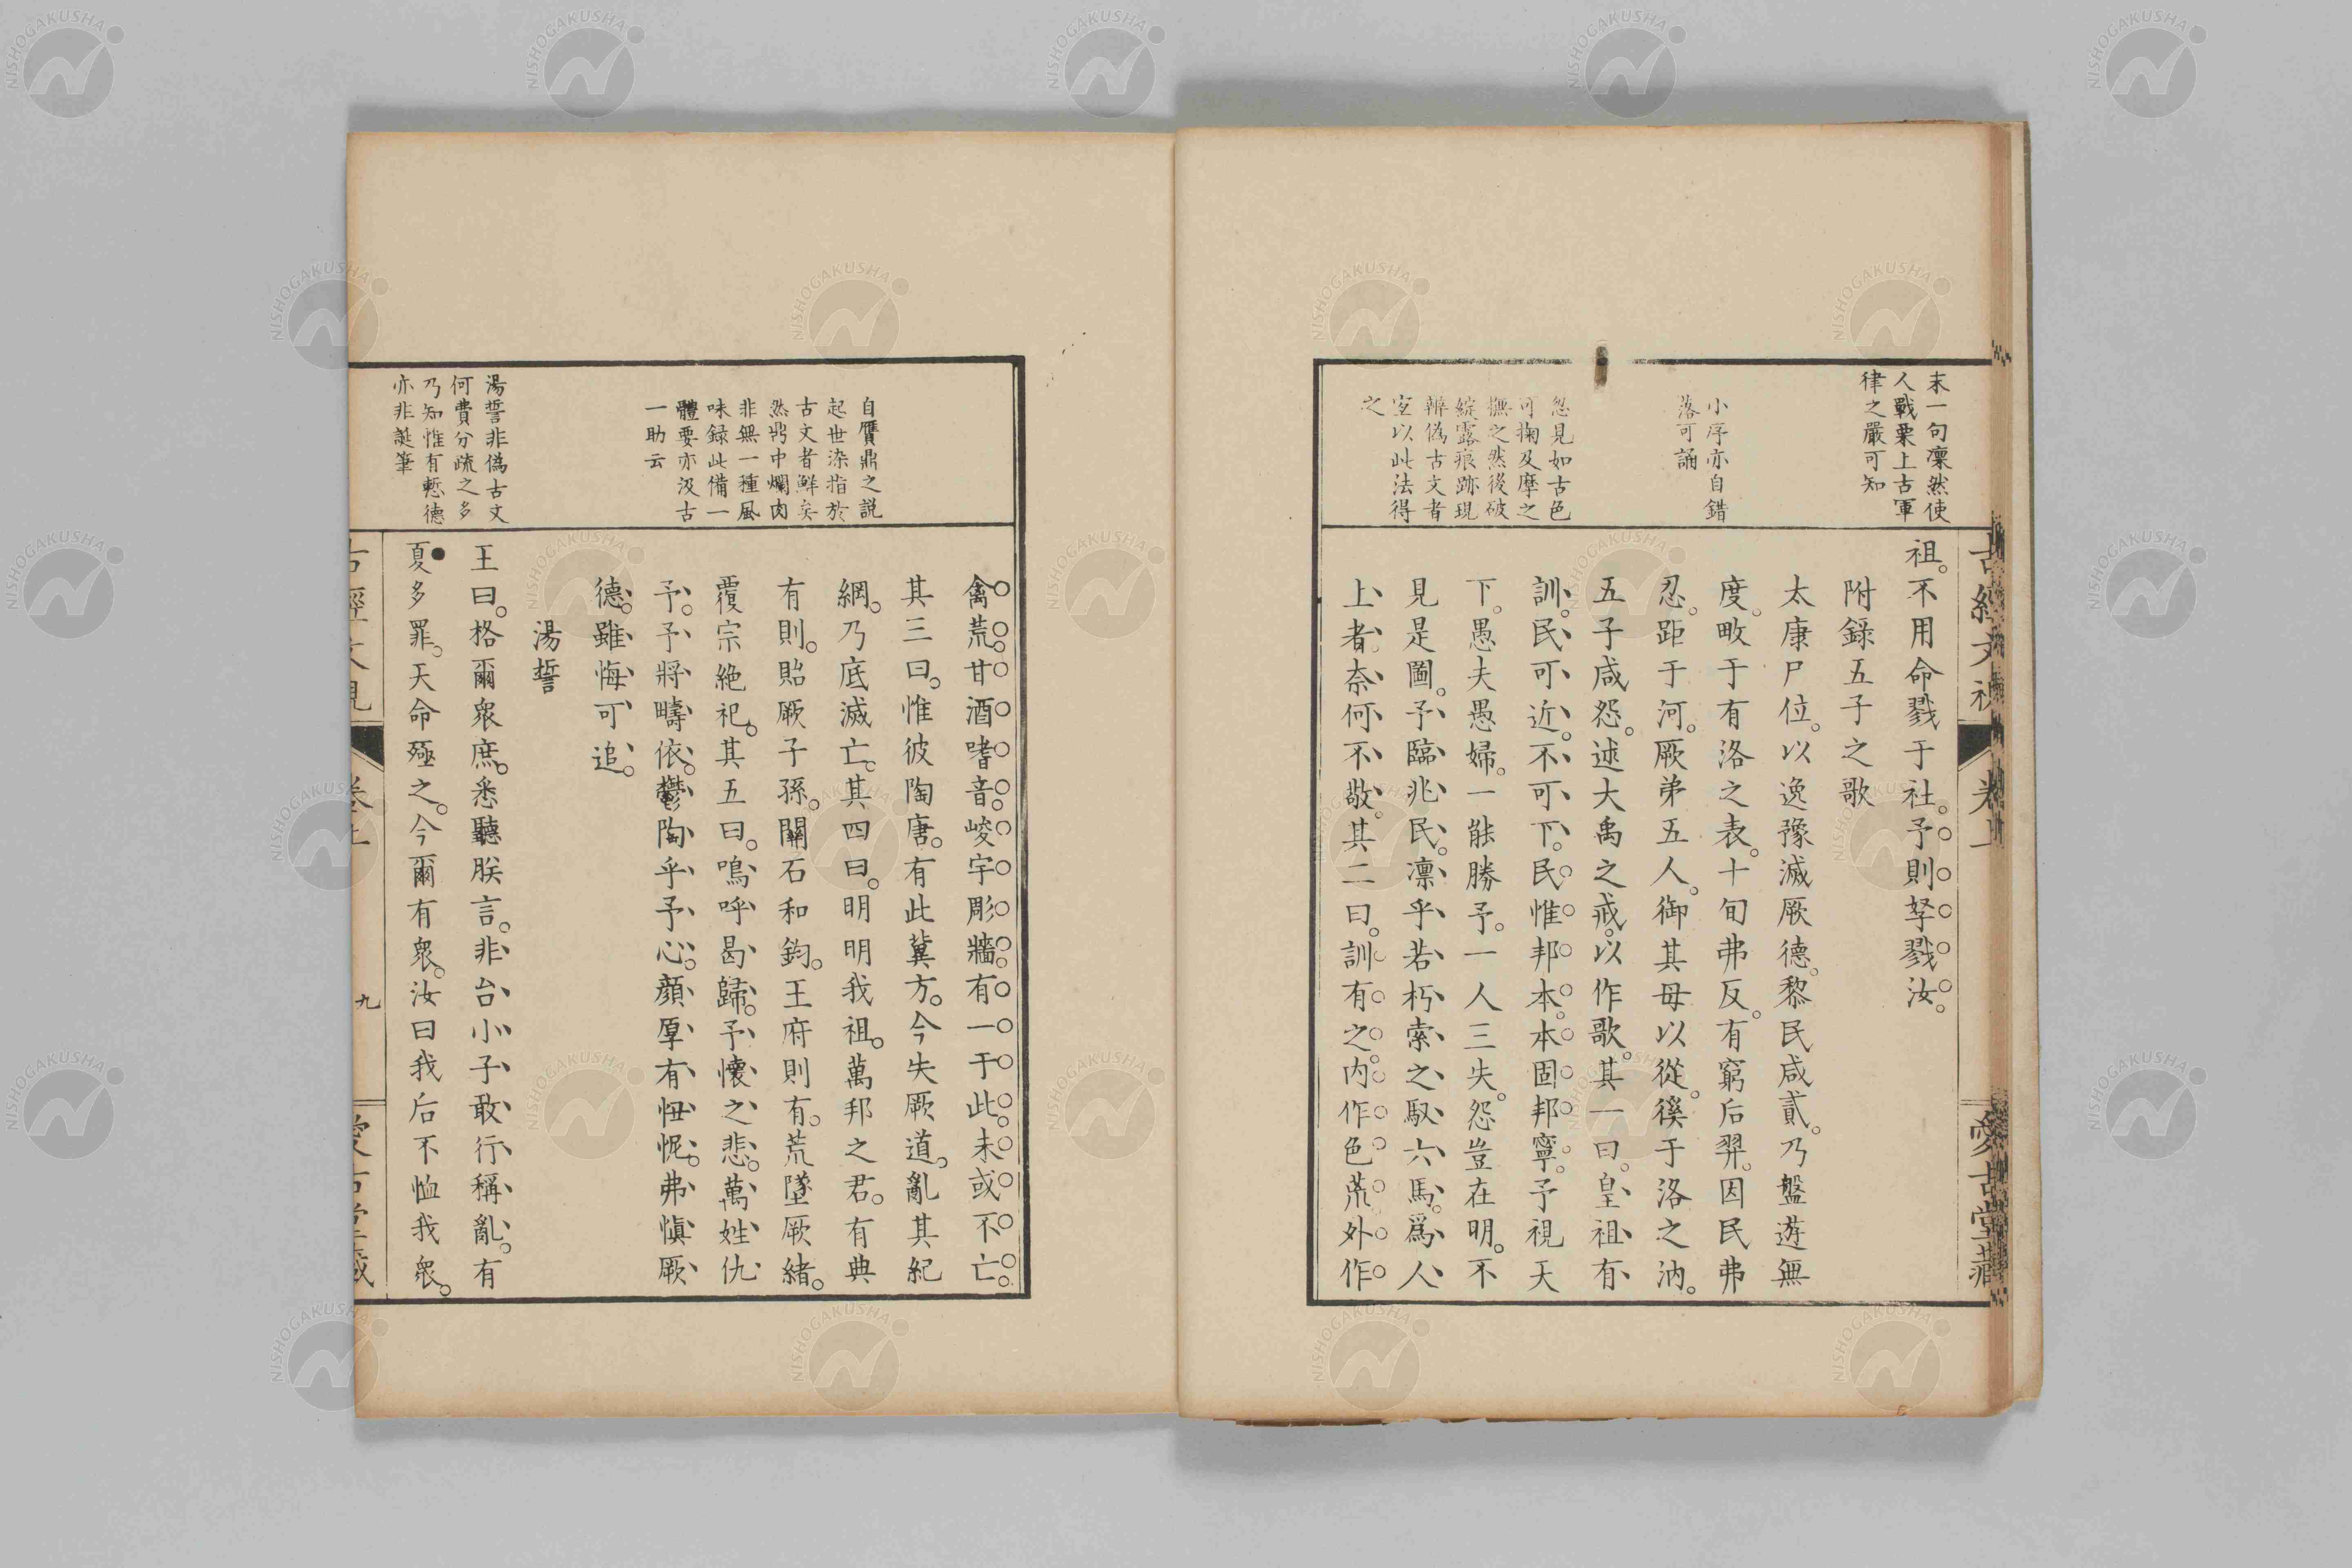 末一句凜然使
人戰栗上古軍
律之嚴可知
小序亦自錯
落可誦
忽見如古色
可掬及摩之
撫之然後破
綻露痕跡現
辨偽古文者
宜以此法得
之
祖。不用命戮于社。予則孥戮汝。
附錄五子之歌
太康尸位。以逸豫滅厥德。黎民咸貳。乃盤遊無
度。畋于有洛之表。十旬弗反。有窮后羿。因民弗
忍。距于河。厥弟五人。御其母以從。徯于洛之汭。
五子咸怨。述大禹之戒。以作歌。其一曰。皇祖有
訓。民可近。不可下。民惟邦本。本固邦寧。予視天
下。愚夫愚婦。一能勝予。一人三失。怨豈在明。不
見是圖。予臨兆民。凜乎若朽索之馭六馬。爲人
上者。奈何不敬。其二曰。訓有之。内作色荒。外作
自贋鼎之説
起世染指於
古文者鮮矣
然鼎中爛肉
非無一種風
味録此備一
體要亦汲古
一助云
湯誓非偽古文
何費分疏之多
乃知惟有慙德
亦非誕筆
禽荒。甘酒嗜音。峻宇彫牆。有一于此。未或不亡。
其三曰。惟彼陶唐。有此冀方。今失厥道。亂其紀
綱。乃底滅亡。其四曰。明明我祖。萬邦之君。有典
有則。貽厥子孫。關石和鈞。王府則有。荒墜厥緒。
覆宗絶祀。其五曰。嗚呼曷歸。予懷之悲。萬姓仇
予。予將疇依。鬱陶乎予心。顔厚有忸怩。弗愼厥
德。雖悔可追。
湯誓
王曰。格爾衆庶。悉聽朕言。非台小子敢行稱亂。有
夏多罪。天命殛之。今爾有衆。汝曰我后不恤我衆。
九
NISHOGAKUSHA